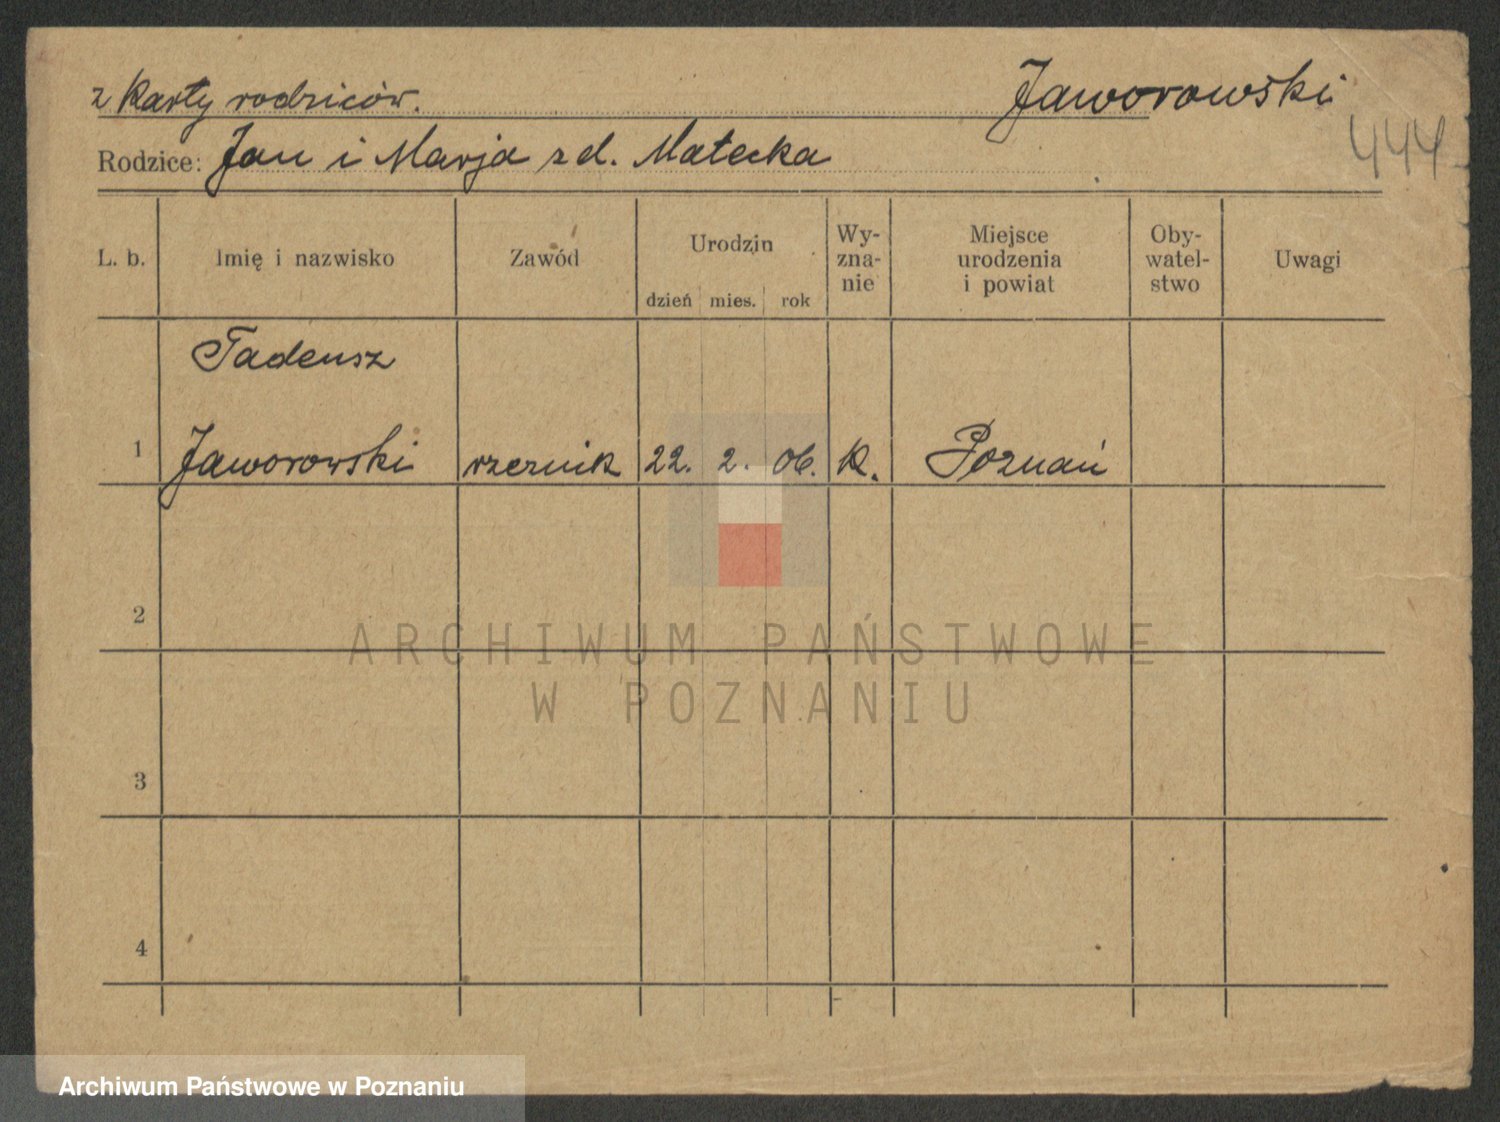 z karty rodziców. Jaworowski
444
Rodzice: Jan i Marja z d. Matecka
L. b. Imię i nazwisko Zawód Urodzin dzień mies. rok Wy-zna-nie Miejsce urodzenia i powiat Oby-watel-stwo Uwagi
Tadeusz
1 Jaworowski rzeźnik 22. 2. 06. k. Poznań
2
ARCHIWUM PAŃSTWOWE
W POZNANIU
3
4
Archiwum Państwowe w Poznaniu